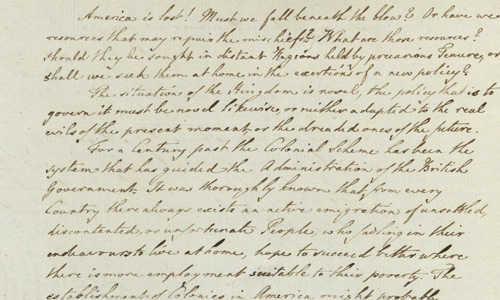 America is lost! Must we fall beneath the blow? Or have we
resources that may repair the mischief? What are those resources?
should they be sought in distant Regions held by precarious Tenure, or
shall we seek them at home in the exertions of a new policy?
The situation of the Kingdom is novel, the policy that is to
govern it must be novel likewise, or neither adapted to the real
evils of the present moment, or the dreaded ones of the future.
For a Century past the Colonial Scheme has been the
system that has guided the Administration of the British
Government. It was thoroughly known that from every
Country there always exists an active emigration of unsettled,
discontented, or unfortunate People, who failing in their
endeavours to live at home, hope to succeed better where
there is more employment suitable to their poverty. The
establishment of Colonies in America might probably